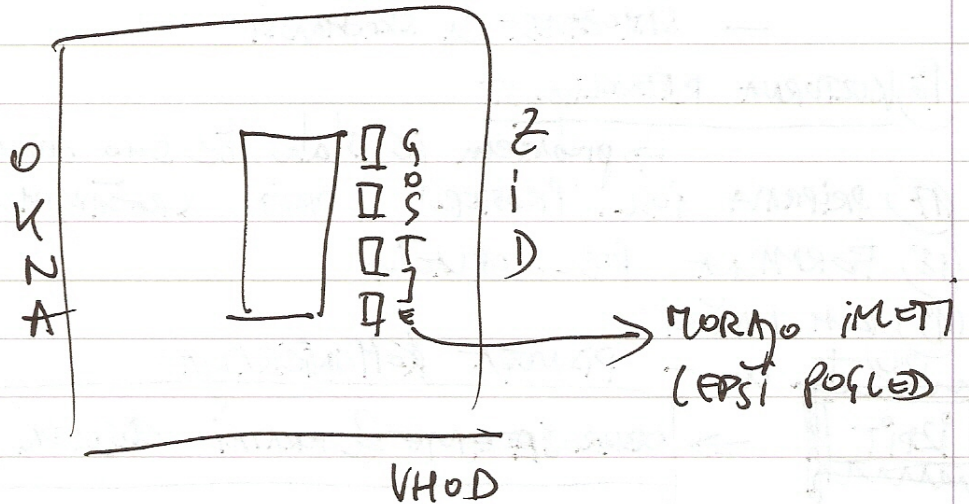 OKNA
GOSTJE
ZiD
MORAJO iMETI
LEPŠI POGLED
VHOD